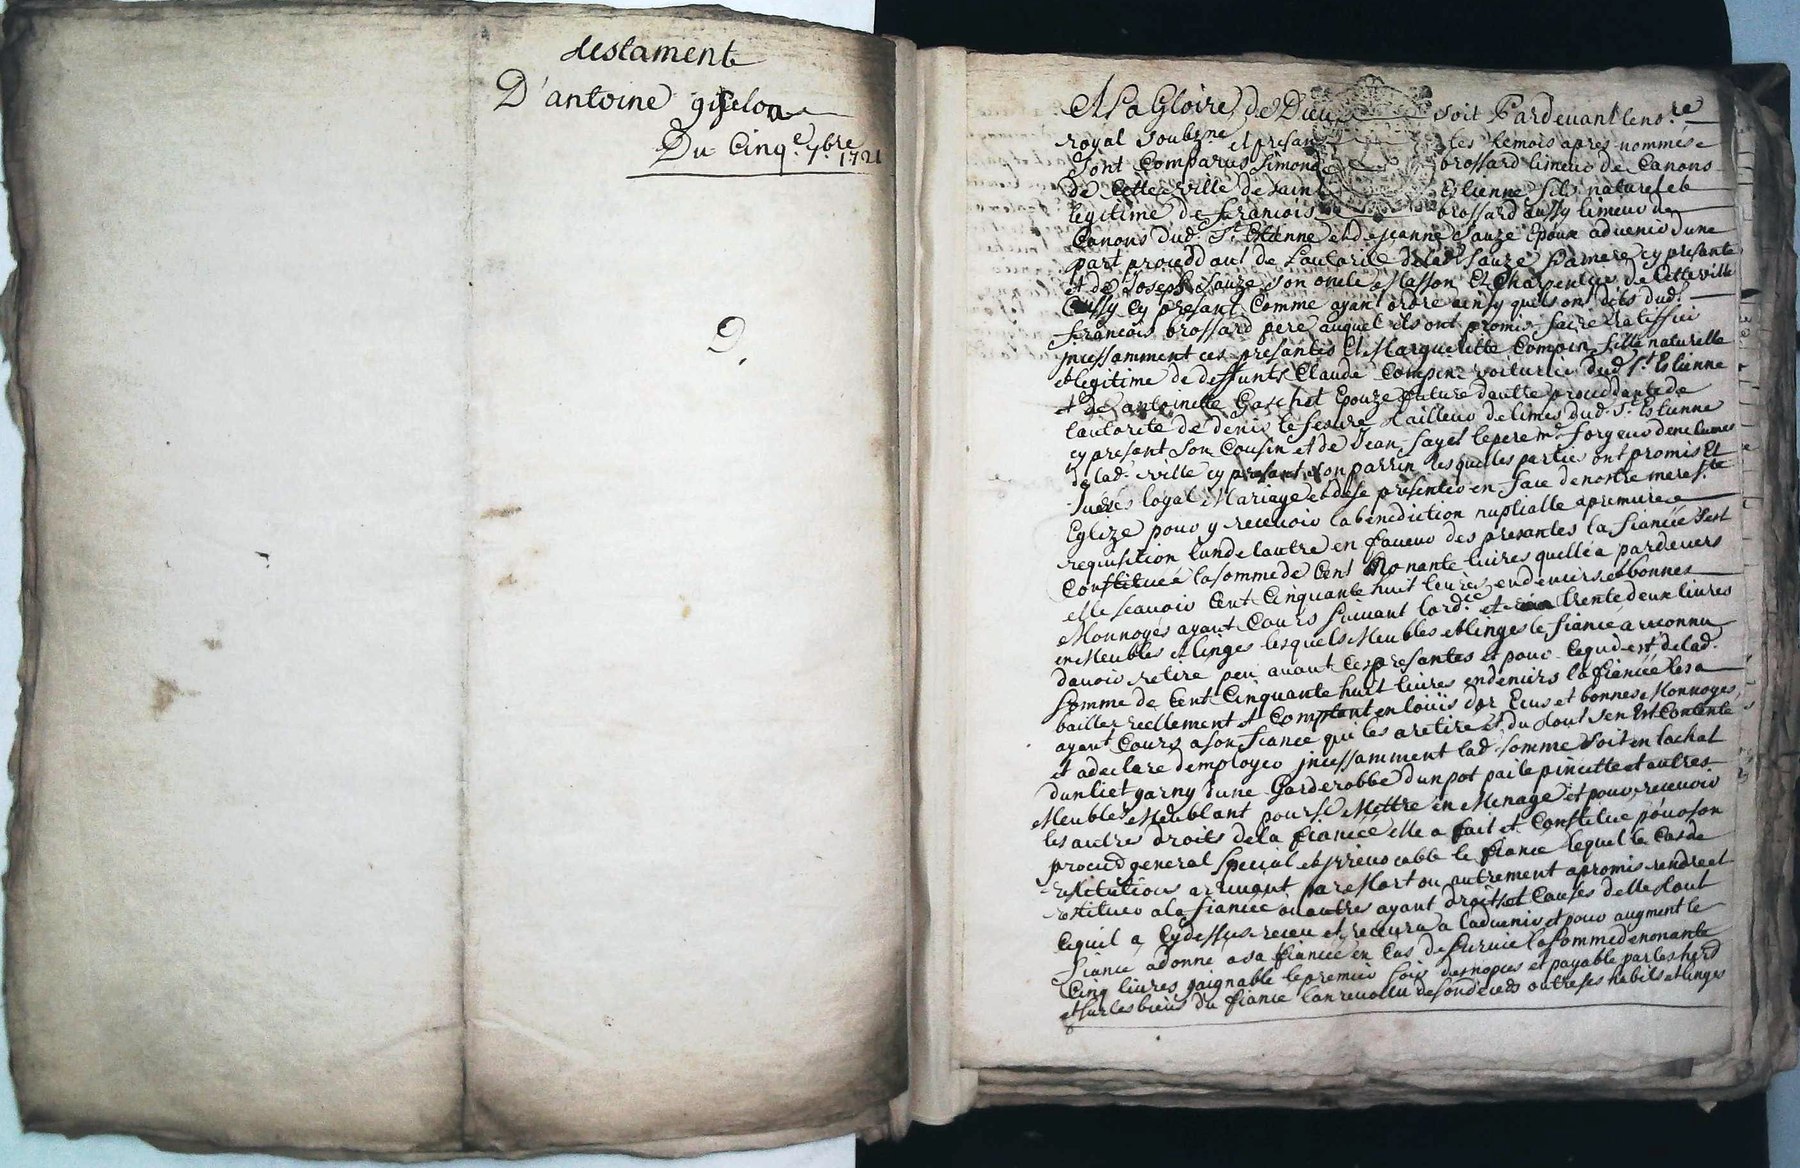 testament
D'antoine giselon
Du Cinq.e 7.bre 1721
9.
A La Gloire de Dieu soit Pardevant le no.re
royal soubz.ne et presan les temois apres nommés
Sont Comparus Simond brossard limeur de Canons
de Cette ville de saint Estienne fils naturel et
legitime de francois brossard aussy limeur de
Canons dud. St. Estienne et de jeanne Sauze Epoux advenir dune
part proceddant de Lautorité de lad. Sauze sa mere cy presente
et de Joseph Sauze son oncle Masson Et Charpentier de Cette ville
aussy Cy presant Comme ayant ordre ainsy quils ont dits dud.
francois brossard pere auquel ils ont promis faire ratiffier
jncessamment ces presantes Et Margueritte Compin fille naturelle
et legitime de deffunts Claude Compin voiturier dud. St. Estienne
et de antoinette Gaschet Epouze future dautre proceddante de
lautorite de denis le feure tailleur de limes dud. St. Estienne
cy present son Cousin et de Jean sayet le pere m.e forgeur denclumes
de lad. ville cy presant son parrin lesquelles partie ont promis Et
Jurés loyal Mariage et de se presenter en face de nostre mere s.te
Eglize pour y recevoir la benediction nuptialle a premiere
requisition lun de lautre en faveur des presantes la fiancée sest
Constituée la somme de Cent Nonante livres quelle a pardevers
elle scavoir Cent Cinquante huit livres en deniers et bonnes
Monnoyes ayant Cours suivant lord.e et trente deux livres
en Meubles et linges lesquels Meubles et linges le fiancé a reconnu
davoir retire peu avant ces presantes et pour Ce qui est de lad.
somme de Cent Cinquante huit livres en deniers la fiancée les a
bailler reellement et Comptant en loüis dor Ecus et bonnes Monnoyes
ayant Cours a son fiance qui les a retire et du tout sen est Contente
et a declare demployer jncessamment lad. somme soit en lachat
dun liet garny dune Garderobbe dun pot paile pincette et autres
Meubles Meublant pour se Mettre en Menage et pour recevoir
les autres droits de la fiancée elle a fait et Constitue pour son
procur general special et jrrevocable le fiance lequel le Cas de
restitution arrivant par Mort ou autrement a promis rendre et
restituer a la fiancée ou autres ayant droit et Causes delle tout
Cequil a Cydessus receu et recevra a ladvenir et pour augment le
fiancé a donne a sa fiancée en Cas de survie la somme de nonante
Cinq livres gaignable le premier soir des nopces et payable par les hers
et sur les biens du fiance lan revollu de son deceds outre ses habits et linges